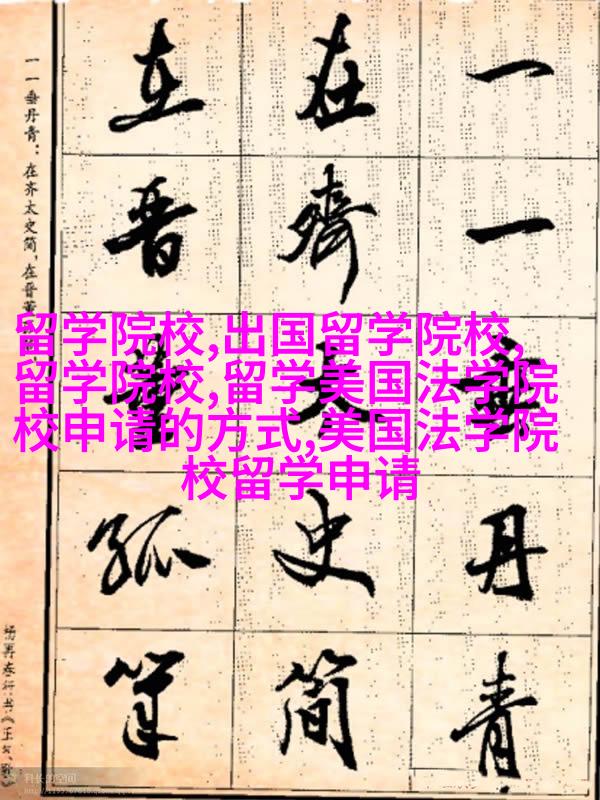 一一垂丹青
在齊太史簡
在晋董孤筆
一一垂丹青：在齐太史简，在晋董
杨再春行书《正气歌
留学院校,出国留学院校,
留学院校,留学美国法学院
校申请的方式,美国法学院
校留学申请
科长的空间